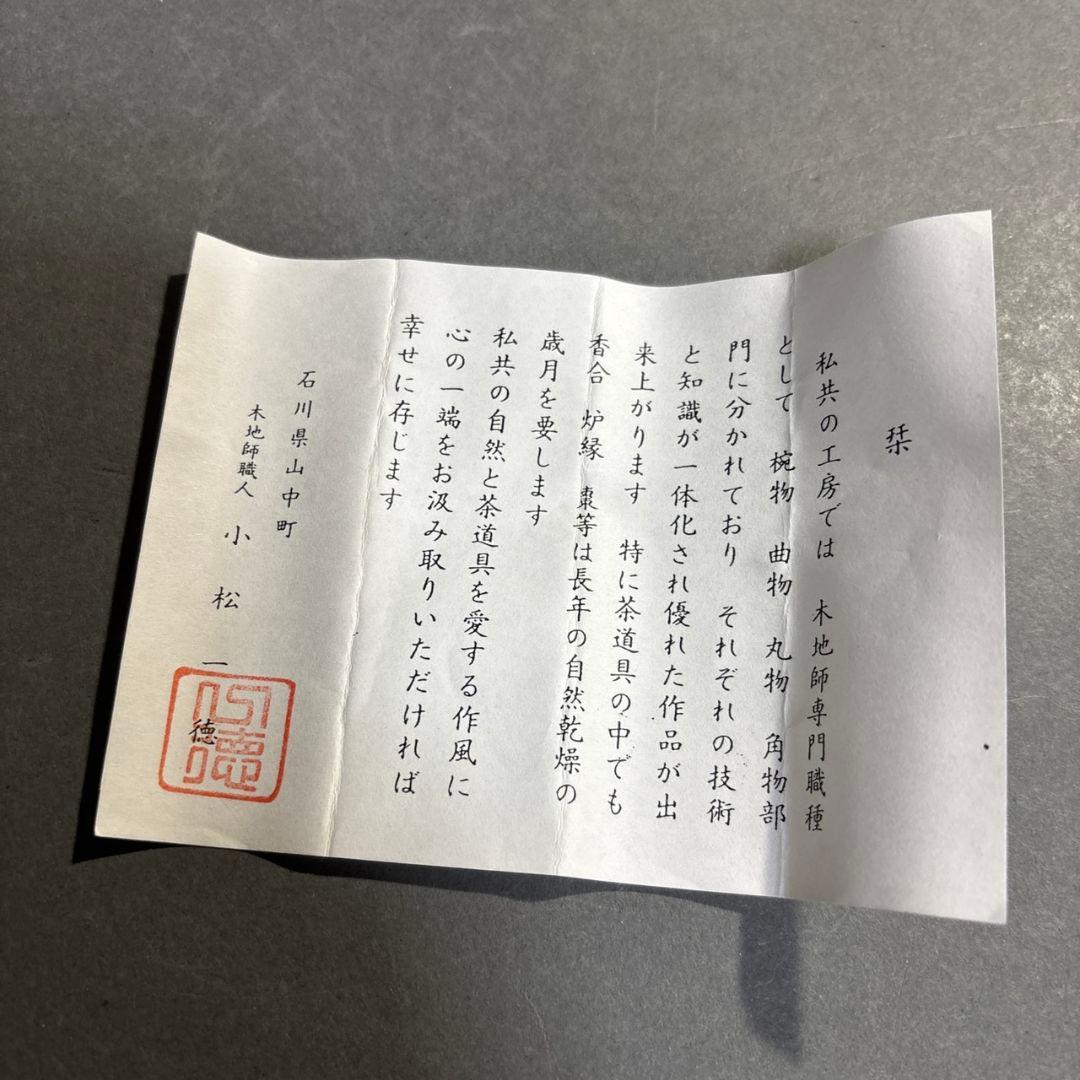 栞
私共の工房では 木地師専門職種
として 椀物 曲物 丸物 角物部
門に分かれており それぞれの技術
と知識が一体化され優れた作品が出
来上がります 特に茶道具の中でも
香合 炉縁 棗等は長年の自然乾燥の
歳月を要します
私共の自然と茶道具を愛する作風に
心の一端をお汲み取りいただければ
幸せに存じます
石川県山中町
木地師職人 小松一徳